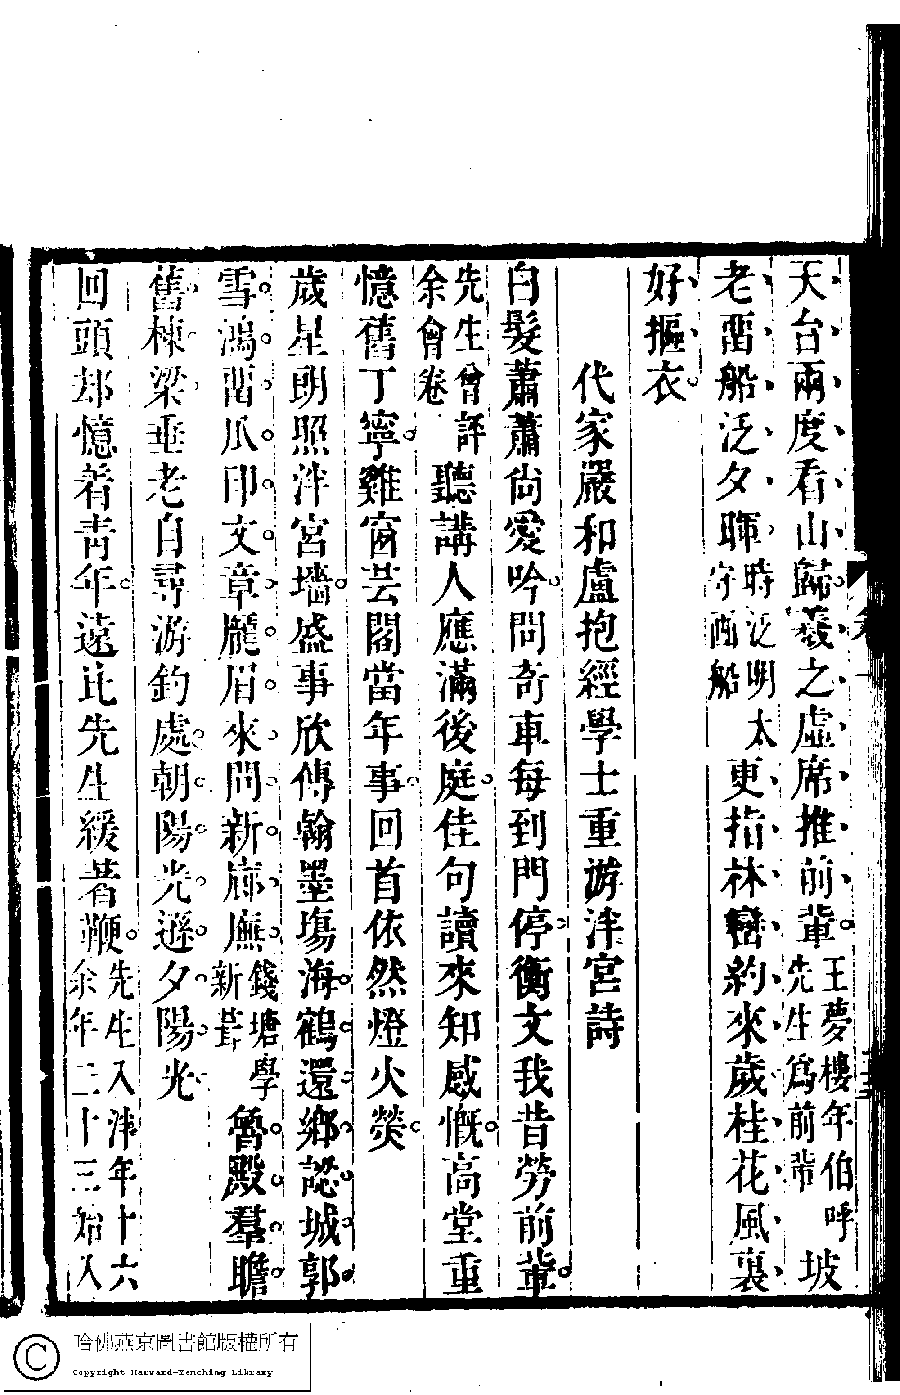 天台兩度看山歸羲之虛席推前輩王夢樓年伯呼先生爲前輩坡
老畱船泛夕暉時泛明府酒船太更指林巒約來歲桂花風裏
好摳衣
代家嚴和盧抱經學士重游泮宮詩
白髮蕭蕭尙愛吟問奇車每到門停衡文我昔勞前輩
先生曾評余會卷聽講人應滿後庭佳句讀來知感慨高堂重
憶舊丁寧雞窗芸閣當年事回首依然燈火熒
歲星朗照泮宮墻盛事欣傳翰墨塲海鶴還鄉認城郭
雪鴻畱爪印文章龐眉來問新廊廡錢塘學新葺魯殿羣瞻
舊棟梁垂老自尋游釣處朝陽光遜夕陽光
回頭却憶着靑年遠比先生緩著鞭先生入泮年十六余年二十三始入
哈佛燕京圖書館版權所有
Copyright Harvard-Yenching Library